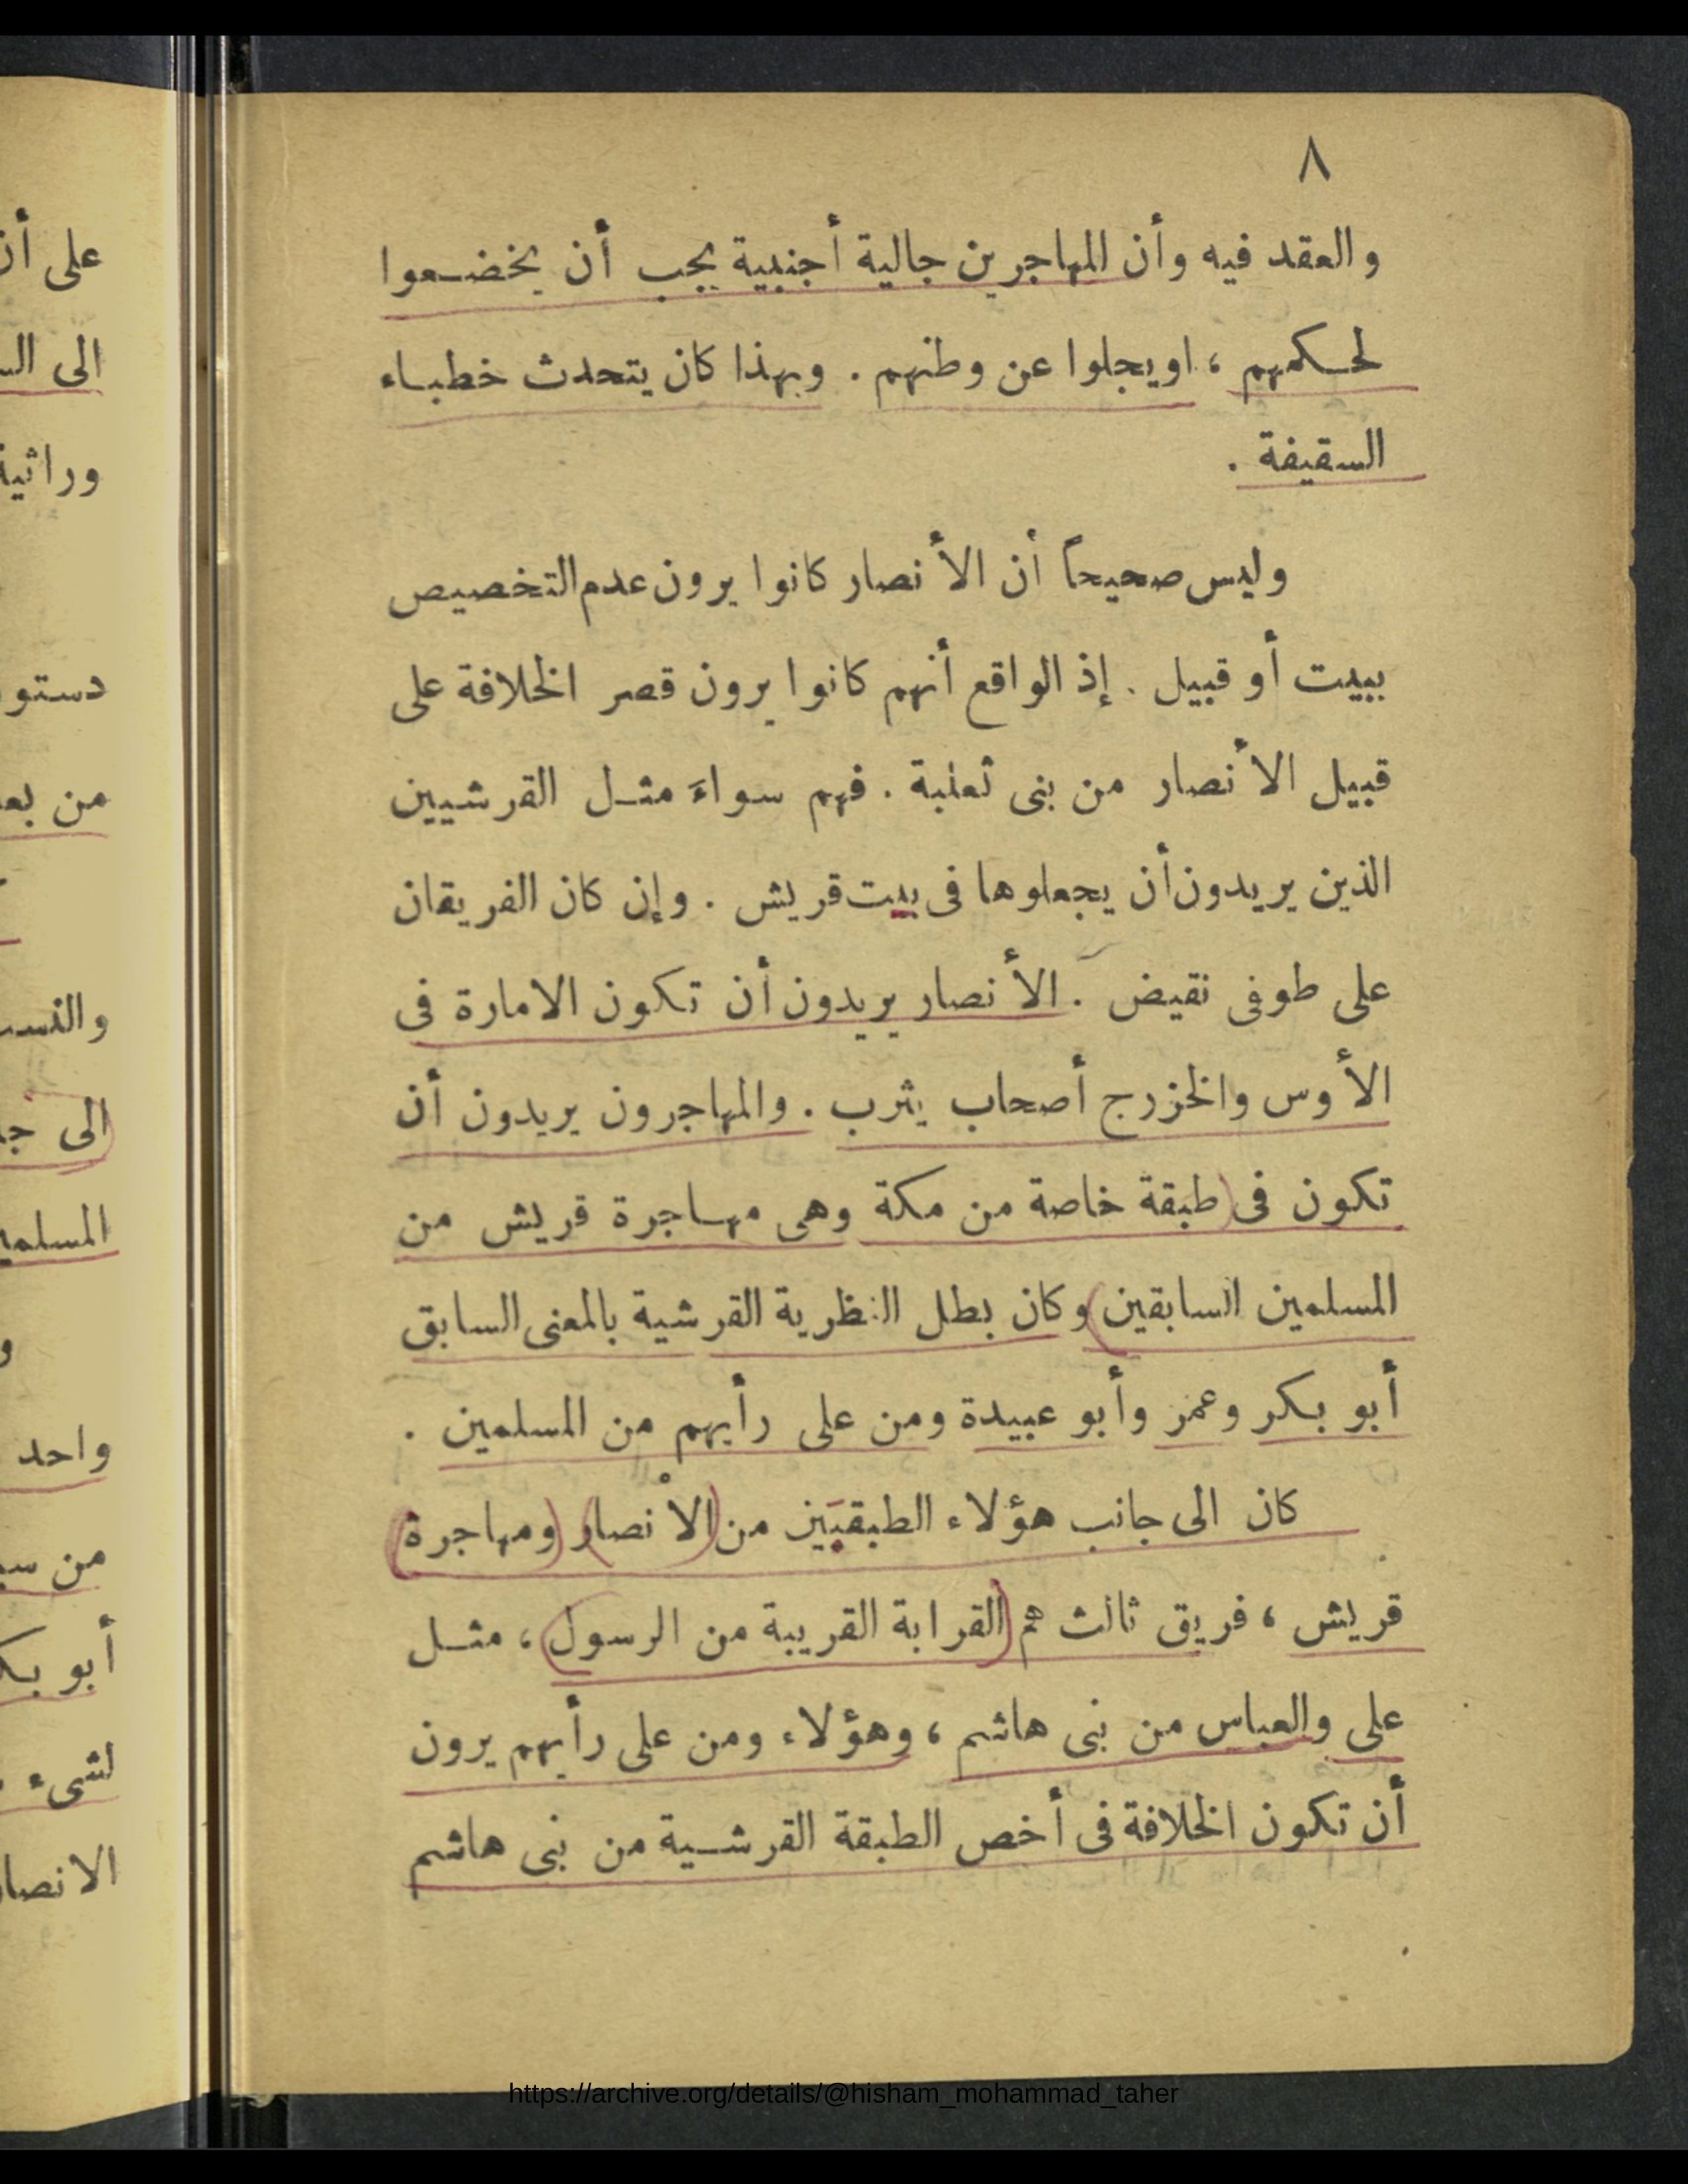 ٨
والعقد فيه وأن المهاجرين جالية أجنبية يجب أن يخضعوا
لحكمهم ، او يجلوا عن وطنهم . وبهذا كان يتحدث خطباء
السقيفة .
وليس صحيحاً أن الأنصار كانوا يرون عدم التخصيص
ببيت أو قبيل . إذ الواقع أنهم كانوا يرون قصر الخلافة على
قبيل الأنصار من بنى ثعلبة . فهم سواء مثل القرشيين
الذين يريدون أن يجعلوها فى بيت قريش . وإن كان الفريقان
على طوفى نقيض . الأنصار يريدون أن تكون الامارة فى
الأوس والخزرج أصحاب يثرب . والمهاجرون يريدون أن
تكون فى (طبقة خاصة من مكة وهى مهاجرة قريش من
المسلمين السابقين) وكان بطل النظرية القرشية بالمعنى السابق
أبو بكر وعمر وأبو عبيدة ومن على رأيهم من المسلمين .
كان الى جانب هؤلاء الطبقتين من (الأنصار) (ومهاجرة
قريش ، فريق ثالث هم (القرابة القريبة من الرسول) ، مثل
على والعباس من بنى هاشم ، وهؤلاء ومن على رأيهم يرون
أن تكون الخلافة فى أخص الطبقة القرشية من بنى هاشم
على أن
الى
دستو
من بعد
الى
واحد
من
أبو بك
لشىء
الانصا
https://archive.org/details/@hisham_mohammad_taher